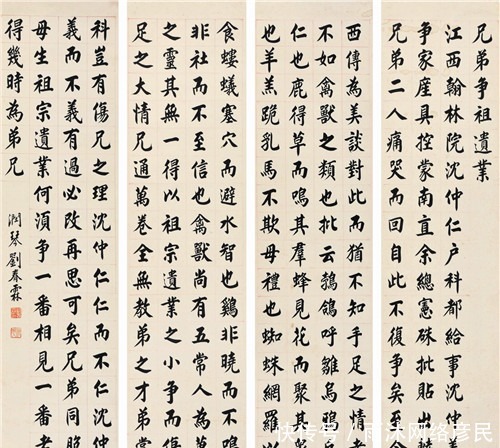 兄弟争祖遺業
江西翰林院沈仲仁户科都給事沈仲
争家産具控蒙南直余總憲硃批貼出
兄弟二人痛哭而回自此不復争矣至
西傳為美談對此而猶不知手足之
不如禽獸之類也批云鵓鴿呼雛烏鴉
仁也鹿得草而鳴其羣蜂見花而聚其
也羊羔跪乳馬不欺母禮也蜘蛛網羅以
食螻蟻塞穴而避水智也鷄非曉而不鳴
非社而不至信也禽獸尚有五常人
之靈其無一得以祖宗遺業之小争
足之大情兄通萬卷全無教弟之才當
科豈有傷兄之理沈仲仁仁而不仁沈仲
義而不義有過必改再思可矣兄弟同胞
母生祖宗遺業何須争一番相見一番老
得幾時為弟兄
潤琴劉春霖
快传号/雨沐网络彦民